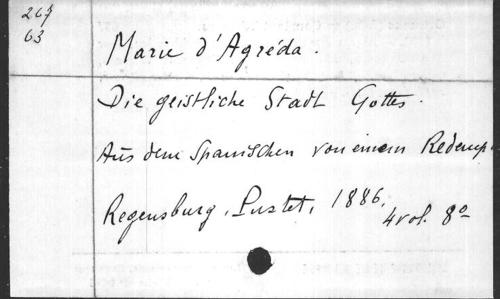 267
63
Marie d'Agréda.
Die geistliche Stadt Gottes.
Aus dem Spanischen von einem Redemp
Regensburg, Pustet, 1886,
4 vol. 8º